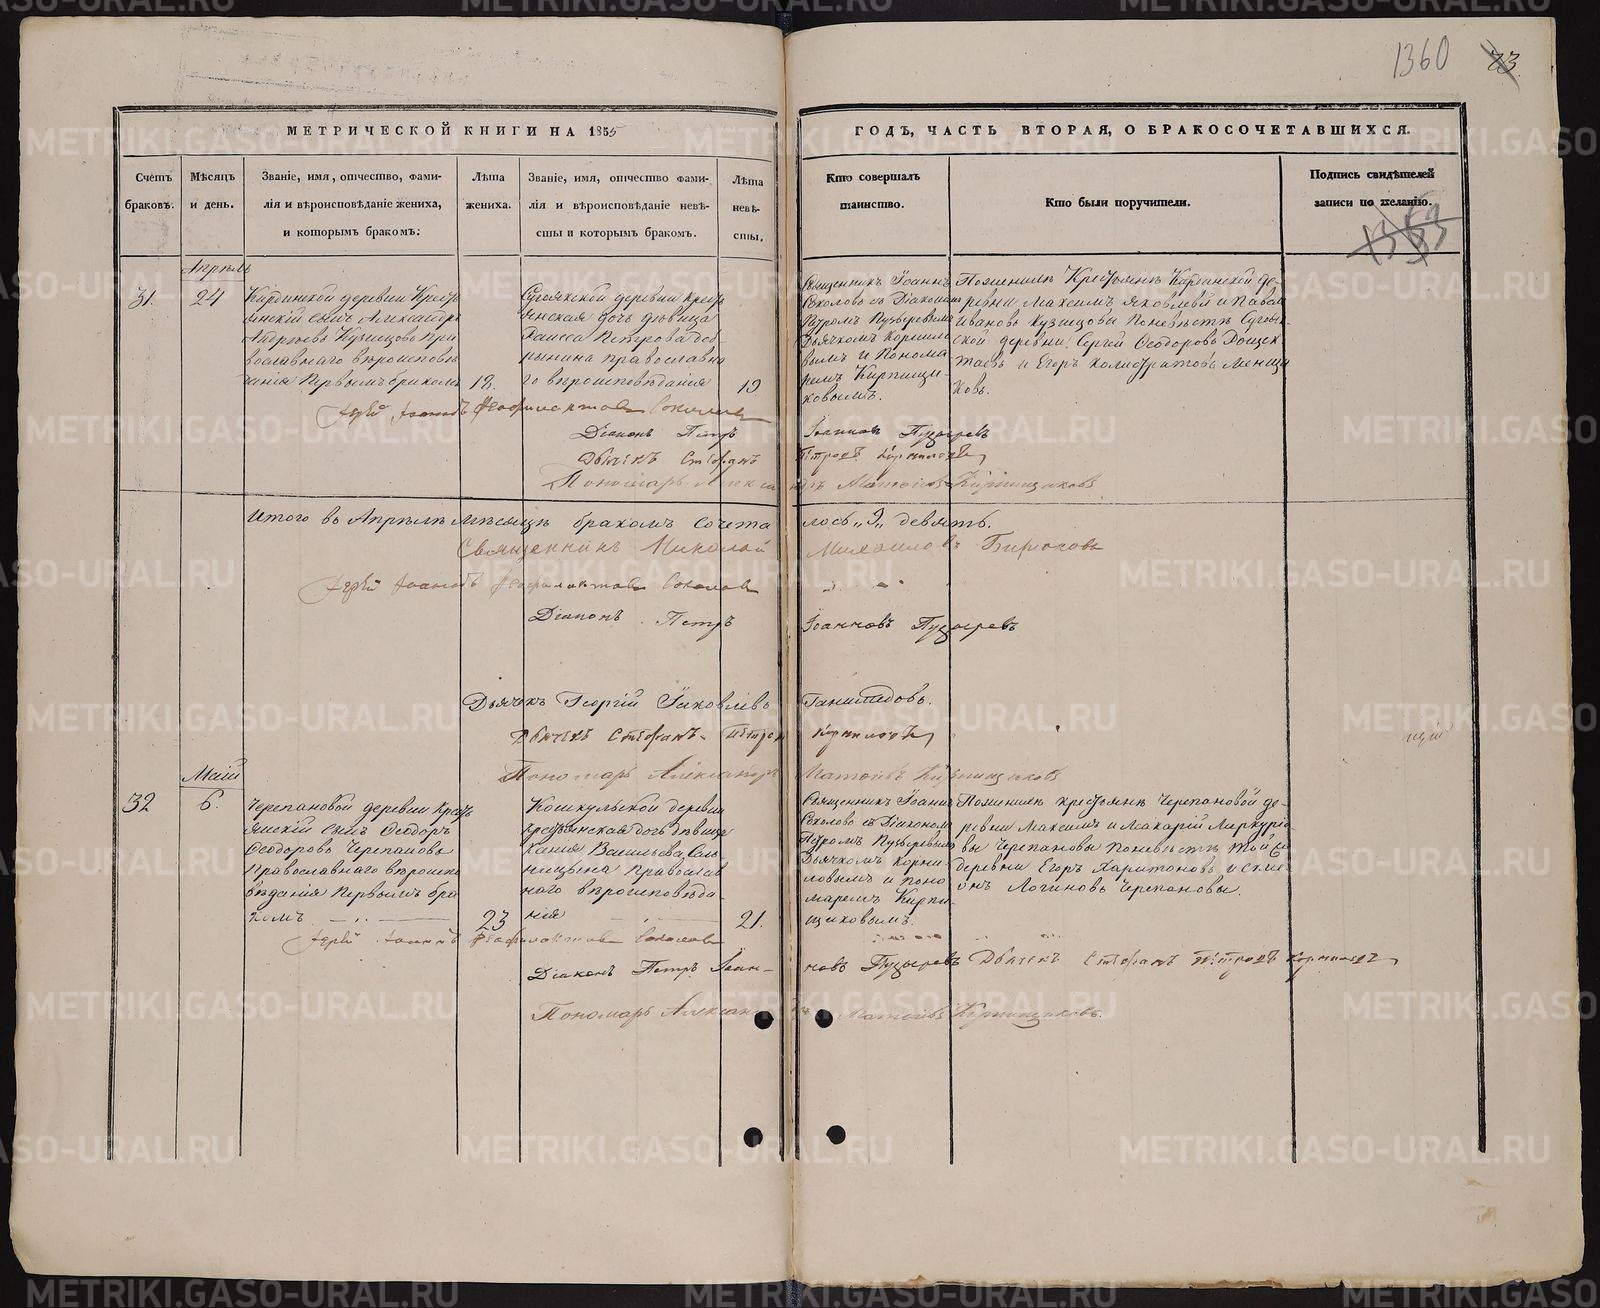 1360 73
МЕТРИЧЕСКОЙ КНИГИ НА 1855
ГОДЪ, ЧАСТЬ ВТОРАЯ, О БРАКОСОЧЕТАВШИХСЯ.
Счетъ браковъ.
Мѣсяцъ и день.
Званіе, имя, отчество, фами-
лія и вѣроисповѣданіе жениха,
и которымъ бракомъ.
Лѣта жениха.
Званіе, имя, отчество фами-
лія и вѣроисповѣданіе невѣ-
сты и которымъ бракомъ.
Лѣта невѣ-
сты.
Кто совершалъ
таинство.
Кто были поручители.
Подпись свидѣтелей
записи по желанію.
Апрѣль
31.
24
деревни Крестъ
янскій сынъ Александръ
Андреевъ Кузнецовъ Пра
вославнаго вѣроисповѣ
данія Первымъ бракомъ
18.
деревни крестъ
янская дочь дѣвица
Раисса Петрова
православна
го вѣроисповѣданія
19
Священникъ Іоаннъ
Соколовъ съ Діакономъ
Петромъ Пузыревымъ
Дьячкомъ Корнило
вымъ и Понома
ремъ Кирпищи
ковымъ.
Поженихѣ Крестьяне де-
ревни Максимъ Яковлевъ и Павелъ
Ивановъ Кузнецовы Поневѣстѣ
ской деревни Сергей Ѳеодоровъ
и Егоръ Калистратовъ
ковъ.
Іерей Іоаннъ Ѳеофилактовъ Соколовъ
Діаконъ Петръ Іоанновъ Пузыревъ
Дьячекъ Стефанъ Петровъ Корниловъ
Пономарь Александръ Матвѣевъ Кирпищиковъ
Итого въ Апрѣлѣ мѣсяцѣ бракомъ сочета лось „9„ девять.
Священникъ Николай Михаиловъ Бирюковъ
Іерей Іоаннъ Ѳеофилактовъ Соколовъ
Діаконъ Петръ Іоанновъ Пузыревъ
Дьячекъ Георгій Іаковлевъ
Дьячекъ Стефанъ Петровъ Корниловъ
Пономарь Александръ Матвѣевъ Кирпищиковъ
Маій
32
6.
Черепановой деревни Кресть
янскій сынъ Ѳеодоръ
Ѳеодоровъ Черепановъ
Православнаго вѣроиспо
вѣданія Первымъ бра
комъ
23
Кошкульской деревни
крестьянская дочь дѣвица
Ксенія Васильева
православ
наго вѣроисповѣда
нія
21.
Священникъ Іоаннъ
Соколовъ съ Діакономъ
Петромъ Пузыревымъ
Дьячкомъ Корни
ловымъ и поно
маремъ Кирпи
щиковымъ.
Поженихѣ крестьяне Черепановой де-
ревни Максимъ и Макарій Меркурье
вы Черепановы Поневѣстѣ той же
деревни Егоръ Харитоновъ и Симе
онъ Логиновъ Черепановы.
Іерей Іоаннъ Ѳеофилактовъ Соколовъ
Діаконъ Петръ Іоан- новъ Пузыревъ Дьячекъ Стефанъ Петровъ Корниловъ
Пономарь Александръ Матвѣевъ Кирпищиковъ.
METRIKI.GASO-URAL.RU